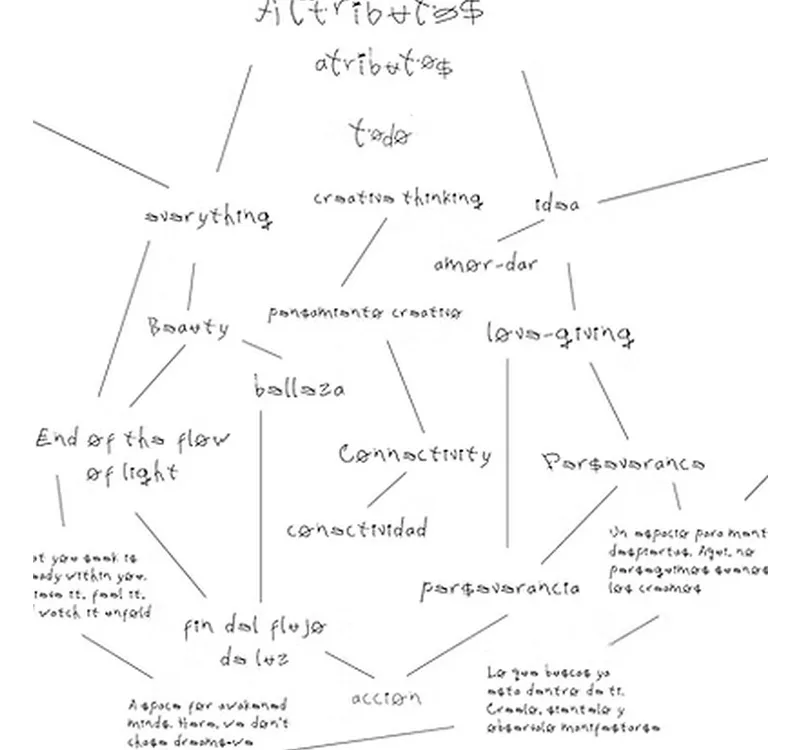 Attributes
atributos
todo
creative thinking
idea
everything
amor-dar
pensamiento creativo
Beauty
love-giving
belleza
End of the flow
of light
Connectivity
Perseverance
conectividad
Un espacio para mant
despiertas. Aquí, no
perseguimos suenos
los creamos
at you seek is
eady within you.
it, feel it,
watch it unfold
perseverancia
fin del flujo
de luz
accion
Lo que buscas ya
esta dentro de ti.
Creelo, sientelo y
observalo manifestarse
A space for awakened
minds. Here, we don't
chase dreams-we